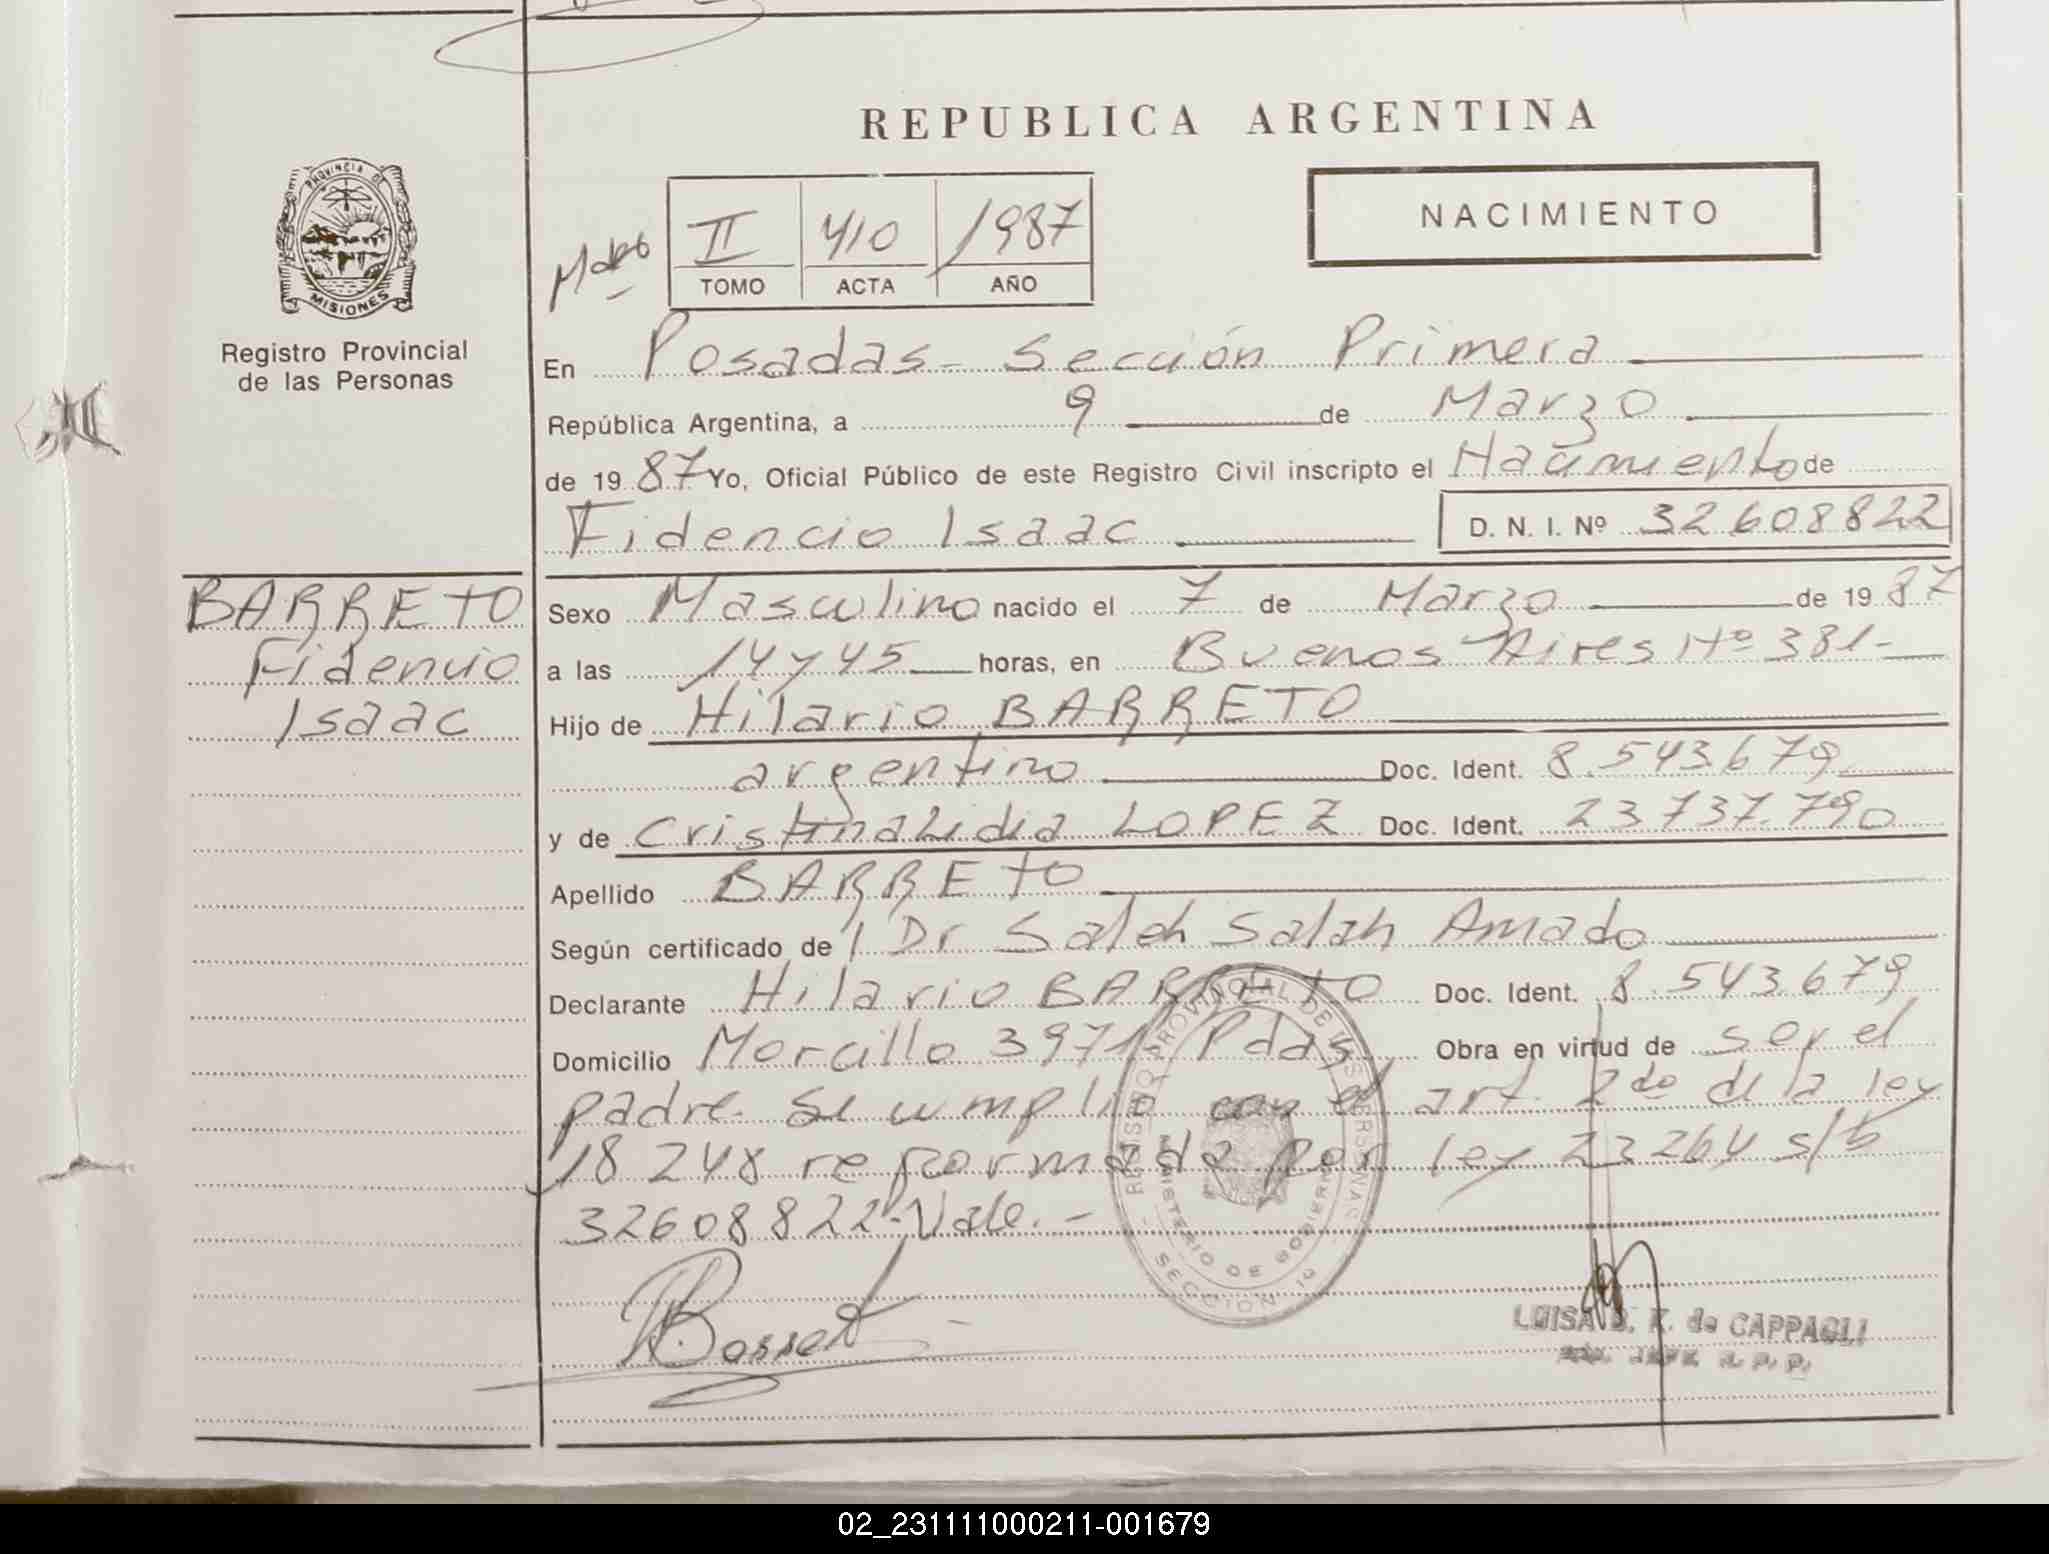 REPUBLICA ARGENTINA
PROVINCIA DE
MISIONES
Registro Provincial
de las Personas
NACIMIENTO
II 410 1987
TOMO ACTA AÑO
En Posadas - Sección Primera
República Argentina, a 9 de Marzo
de 1987 Yo, Oficial Público de este Registro Civil inscripto el Nacimiento de
Fidencio Isaac D. N. I. Nº 32608822
BARRETO
Fidencio
Isaac
Sexo Masculino nacido el 7 de Marzo de 1987
a las 14 y 45 horas, en Buenos Aires Nº 381-
Hijo de Hilario BARRETO
argentino Doc. Ident. 8.543.679
y de Cristina Lidia LOPEZ Doc. Ident. 23.737.790
Apellido BARRETO
Según certificado de l Dr Saleh Salah Amado
Declarante Hilario BARRETO Doc. Ident. 8.543.679
Domicilio Morcillo 3971 Pdas. Obra en virtud de ser el
padre. Se cumplió con el art. 2do de la ley
18.248 reformada por ley 23264 s/b
32608822-Vale.-
REGISTRO PROVINCIAL DE LAS PERSONAS
MINISTERIO DE GOBIERNO
SECCION 1º
LUISA K. de CAPPAGLI
JEFE R. P. P.
02_231111000211-001679